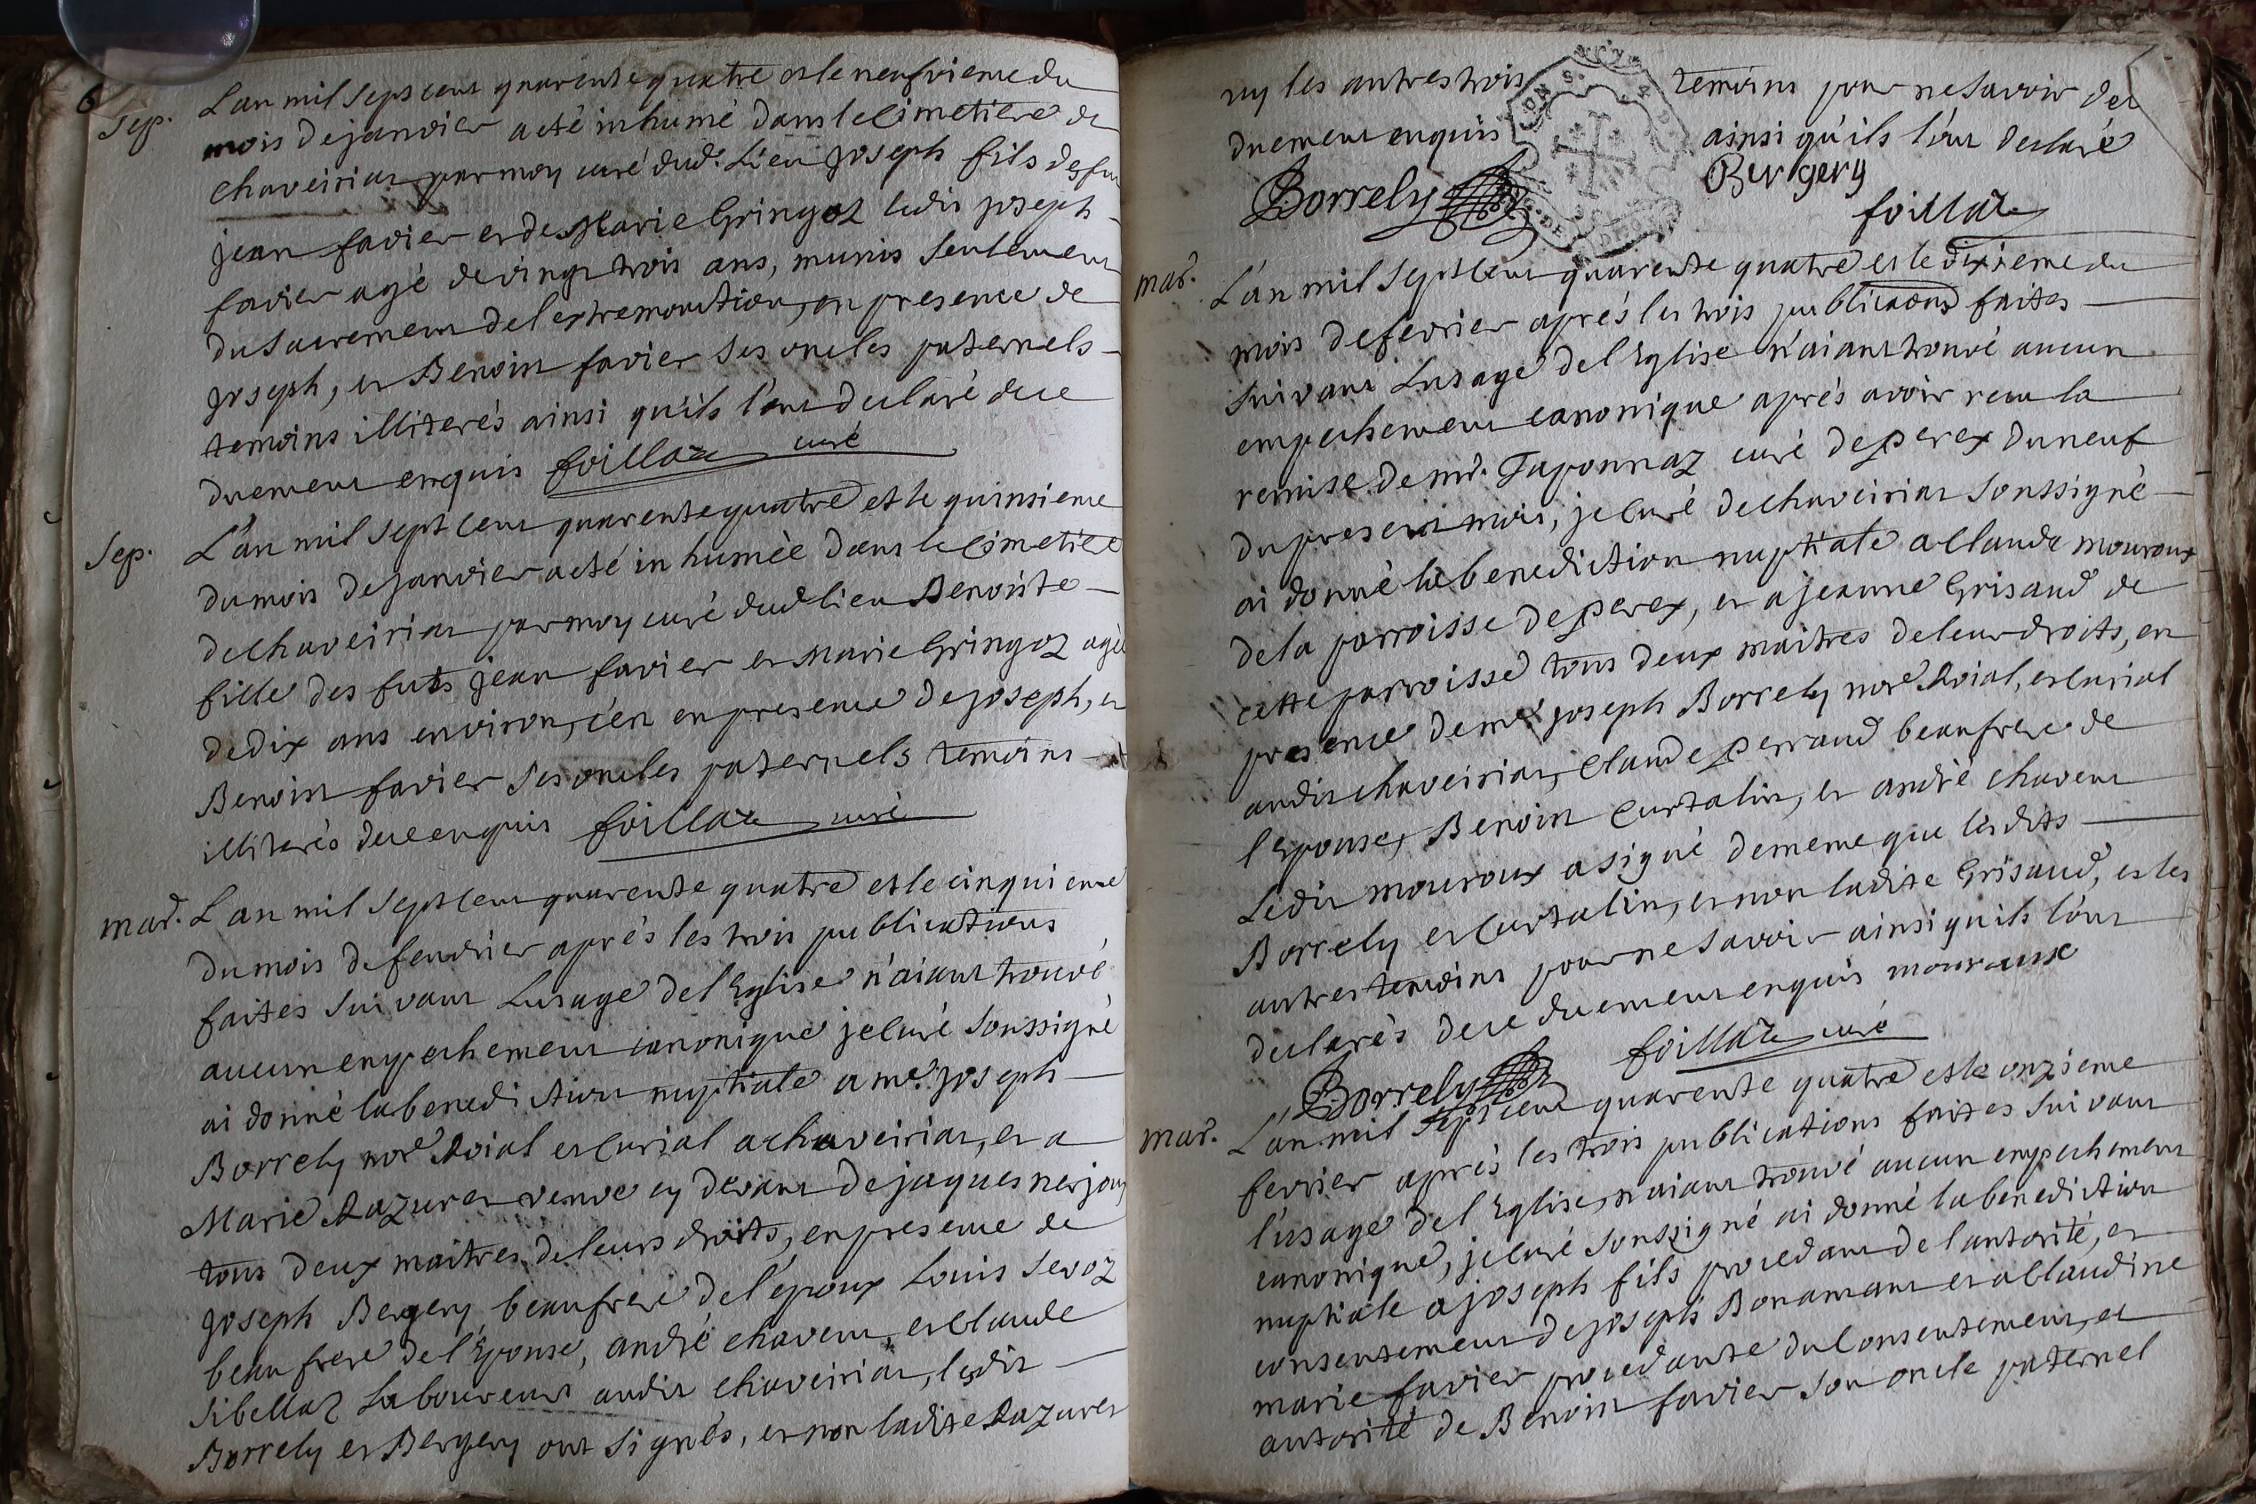 6
Sep. L'an mil sept cent quarente quatre et le neufvieme du
mois de janvier a eté inhumé dans le Cimetiere de
chaveiriat par moy curé dud. Lieu Joseph fils de fut
jean favier et de Marie Gringoz ledit joseph
favier agé de vingt trois ans, munis seulement
du sacrement de l'extremonction, en presence de
joseph, et Benoist favier ses oncles paternels
temoins illiterés ainsi qu'ils l'ont declaré de ce
duement enquis foillaz curé
Sep. L'an mil sept cent quarente quatre et le quinsieme
du mois de janvier a eté inhumée dans le Cimetiere
de chaveiriat par moy curé dud lieu Benoiste
fille des futs jean favier et Marie Gringoz agée
de dix ans environ, c'en en presence de joseph, et
Benoist favier ses oncles paternels temoins
illiterés de ce enquis foillaz curé
mar. L'an mil sept cent quarente quatre et le cinquieme
du mois de feuvrier aprés les trois publications
faites suivant Lusage de l'Eglise n'aiant trouvé
aucun empechement canonique je curé soussigné
ai donné la benediction nuptiale a me. joseph
Borrely nore Roial et Curial a chaveiriat, et a
Marie Razurel veuve cy devant de jaques nerjoux
tous deux maitres de leurs droits, en presence de
joseph Bergery beaufrere de l'époux Louis Sevoz
beaufrere de l'Epouse, andré chavent, et Claude
Sibellaz Laboureurs audit chaveiriat, ledit
Borrely et Bergery ont signés, et non ladite Razurel
ny les autres trois temoins pour ne savoir de ce
duement enquis ainsi qu'ils l'ont declaré
Borrely Bergery
foillaz
mar. L'an mil sept cent quarente quatre et le dixieme du
mois de fevrier aprés les trois publications faites
suivant Lusage de l'Eglise n'aiant trouvé aucun
empechement canonique aprés avoir receu la
remise de mr. Taponnaz curé de perex du neuf
du present mois, je curé de chaveiriat soussigné
ai donné la benediction nuptiale a Claude mouroux
de la parroisse de perex, et a jeanne Grisaud de
cette parroisse tous deux maitres de leur droits, en
presence de me joseph Borrely nore Roial, et Curial
audit chaveiriat, Claude perraud beaufrere de
l'Epouse, Benoist Curtalin, et andré chavent
Ledit mouroux a signé de meme que lesdits
Borrely et Curtalin, et non ladite Grisaud, et les
autres temoins pour ne savoir ainsi qu'ils l'ont
declarés de ce duement enquis mouroux
Borrely foillaz curé
mar. L'an mil sept cent quarente quatre et le onzieme
fevrier aprés les trois publications faites suivant
l'usage de l'Eglise, n'aiant trouvé aucun empechement
canonique, je curé soussigné ai donné la benediction
nuptiale a joseph fils procedant de l'autorité, et
consentement de joseph Bonamant et a Claudine
marie favier procedante du Consentement, et
autorité de Benoist favier son oncle paternel